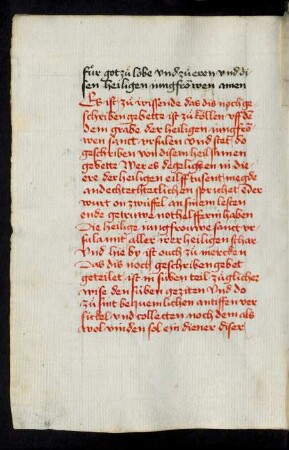 für got zů lobe vnd zů eren vnd di
sen heiligen iungfröwen amen
Es ist zů wissende das dis noch ge
schriben gebette ist zů köllen vff de
dem grabe der heiligen iungfrö
wen sanct vrsulen vnd stet do
geschriben von disem heilsamen
gebette Wer es degelichen in die
ere der heiligen eilff tusent megde
andechteklichen sprichet Der
wurt on zwüfel an sinem lesten
ende getruwe nothelfferin haben
Die heilige iungfrouwe sanct vr
sula mit aller irer heiligen schar
Vnd hie by ist ouch zů mercken
Das dis noch geschriben gebet
geteilet ist in siben teil zů glicher
wise den süben geziten Vnd do
zů sint bequemlichen antiffen ver
sickel vnd collecten noch dem als
wol vinden sol ein diener diser